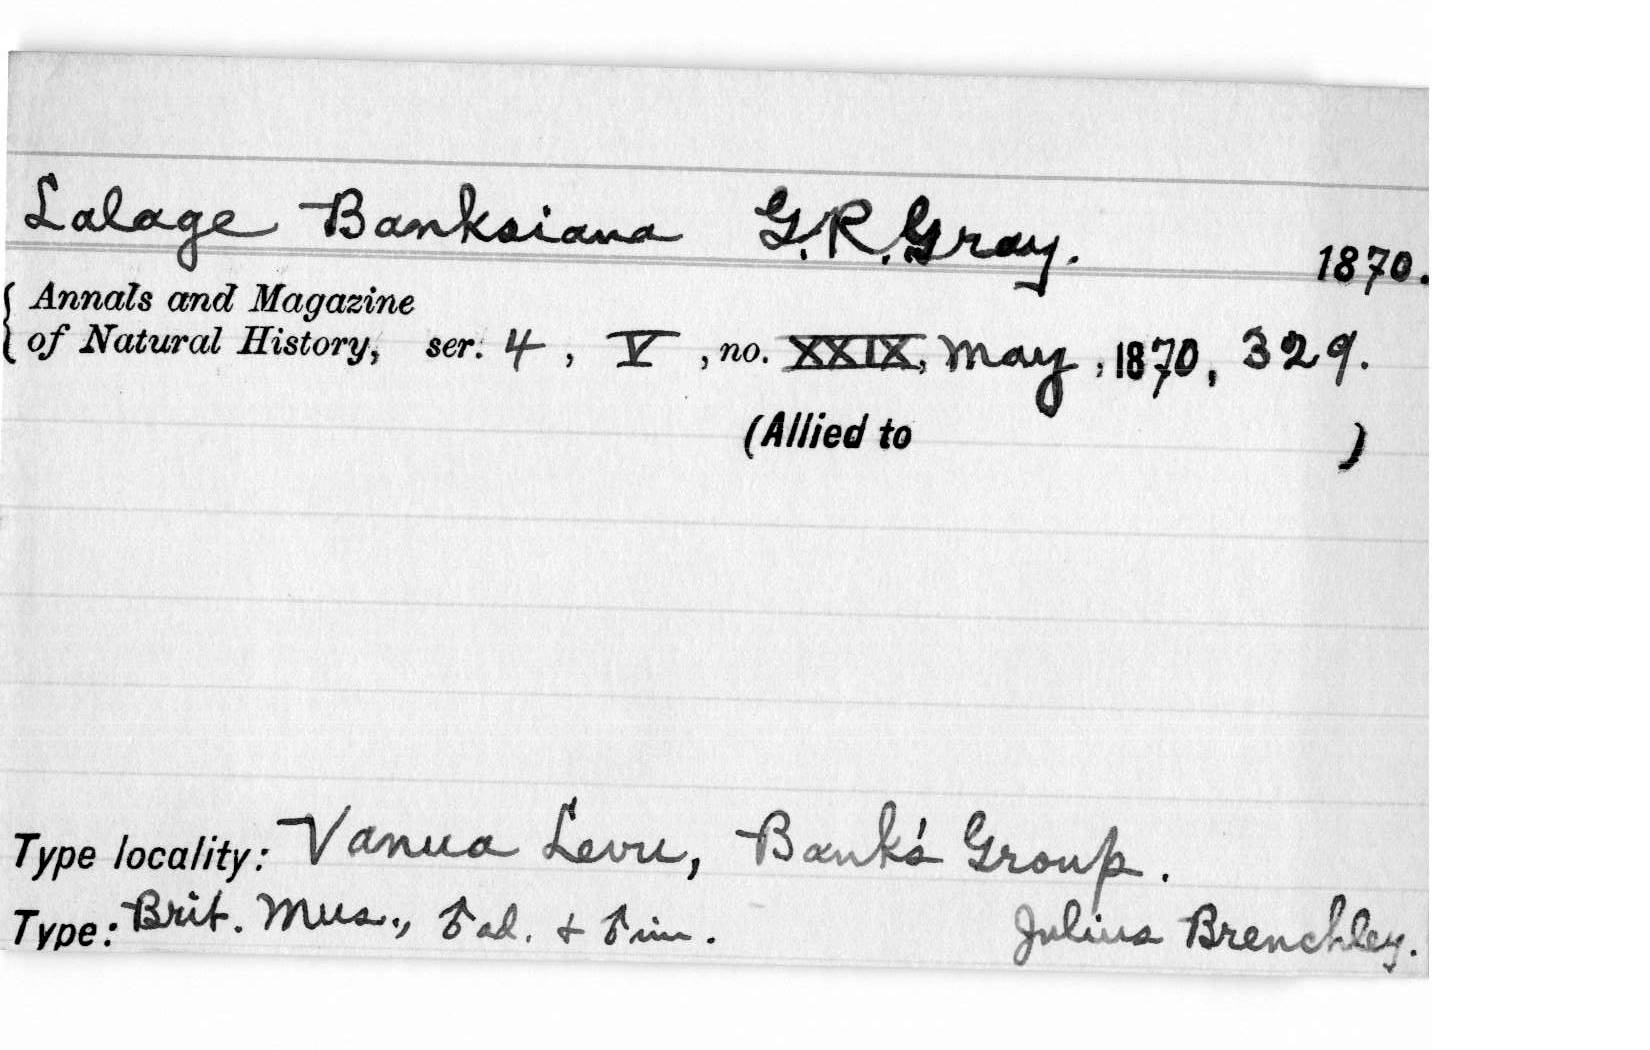 Lalage Banksiana G.R.Gray. 1870.
Annals and Magazine
of Natural History, ser. 4, V, no. XXIX, May, 1870, 329.
(Allied to )
Type locality: Vanua Levu, Bank's Group.
Type: Brit. Mus., ♂ ad. + ♂ imm. Julius Brenchley.